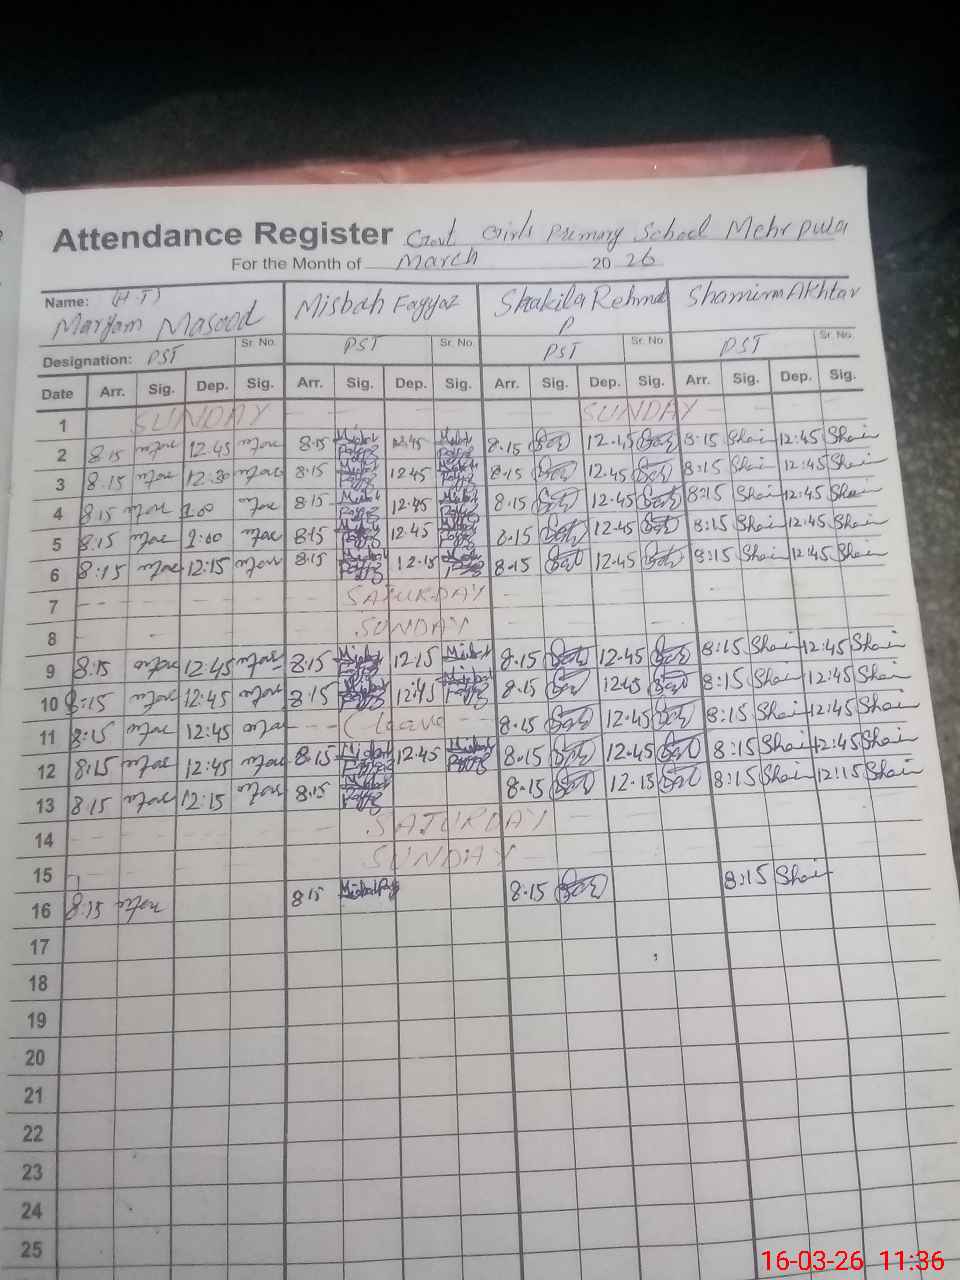 Attendance Register Govt Girls Primary School Mehrpura
For the Month of March 20 26
Name: (H.T) Maryam Masood Misbah Fayyaz Shakila Rehmat Shamim Akhtar
Designation: PST Sr. No. PST Sr. No. PST Sr. No. PST Sr. No.
Date Arr. Sig. Dep. Sig. Arr. Sig. Dep. Sig. Arr. Sig. Dep. Sig. Arr. Sig. Dep. Sig.
1 SUNDAY SUNDAY
2 8:15 12:45 8:15 12:45 8.15 12.45 8:15 Shai 12:45 Shai
3 8:15 12:30 8:15 12 45 8.15 12.45 8:15 Shai 12:45 Shai
4 8:15 1:00 8:15 12:45 8.15 12.45 8:15 Shai 12:45 Shai
5 8:15 1:00 8:15 12.45 8.15 12.45 8:15 Shai 12:45 Shai
6 8:15 12:15 8:15 12.15 8.15 12.45 8:15 Shai 12:45 Shai
7 SATURDAY
8 SUNDAY
9 8:15 12:45 8:15 12:15 8.15 12.45 8:15 Shai 12:45 Shai
10 8:15 12:45 8:15 12:45 8.15 12.45 8:15 Shai 12:45 Shai
11 8:15 12:45 Cleave 8.15 12.45 8:15 Shai 12:45 Shai
12 8:15 12:45 8:15 12:45 8.15 12.45 8:15 Shai 12:45 Shai
13 8:15 12:15 8:15 8.15 12.15 8:15 Shai 12:15 Shai
14 SATURDAY
15 SUNDAY
16 8:15 8:15 8.15 8:15 Shai
17
18
19
20
21
22
23
24
25
16-03-26 11:36